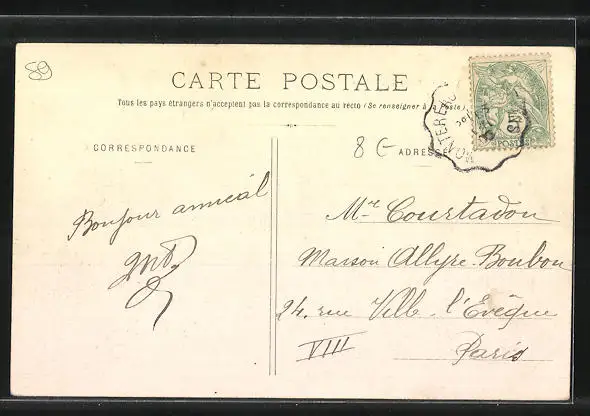 89
CARTE POSTALE
Tous les pays étrangers n'acceptent pas la correspondance au recto (Se renseigner à la Poste)
CORRESPONDANCE
8 €
ADRESSE
MONTEREAU
POSTES
Bonjour amical
Mr Courtadon
Maison Allyre-Boubon
24. rue Ville-l'Evêque
VIII
Paris